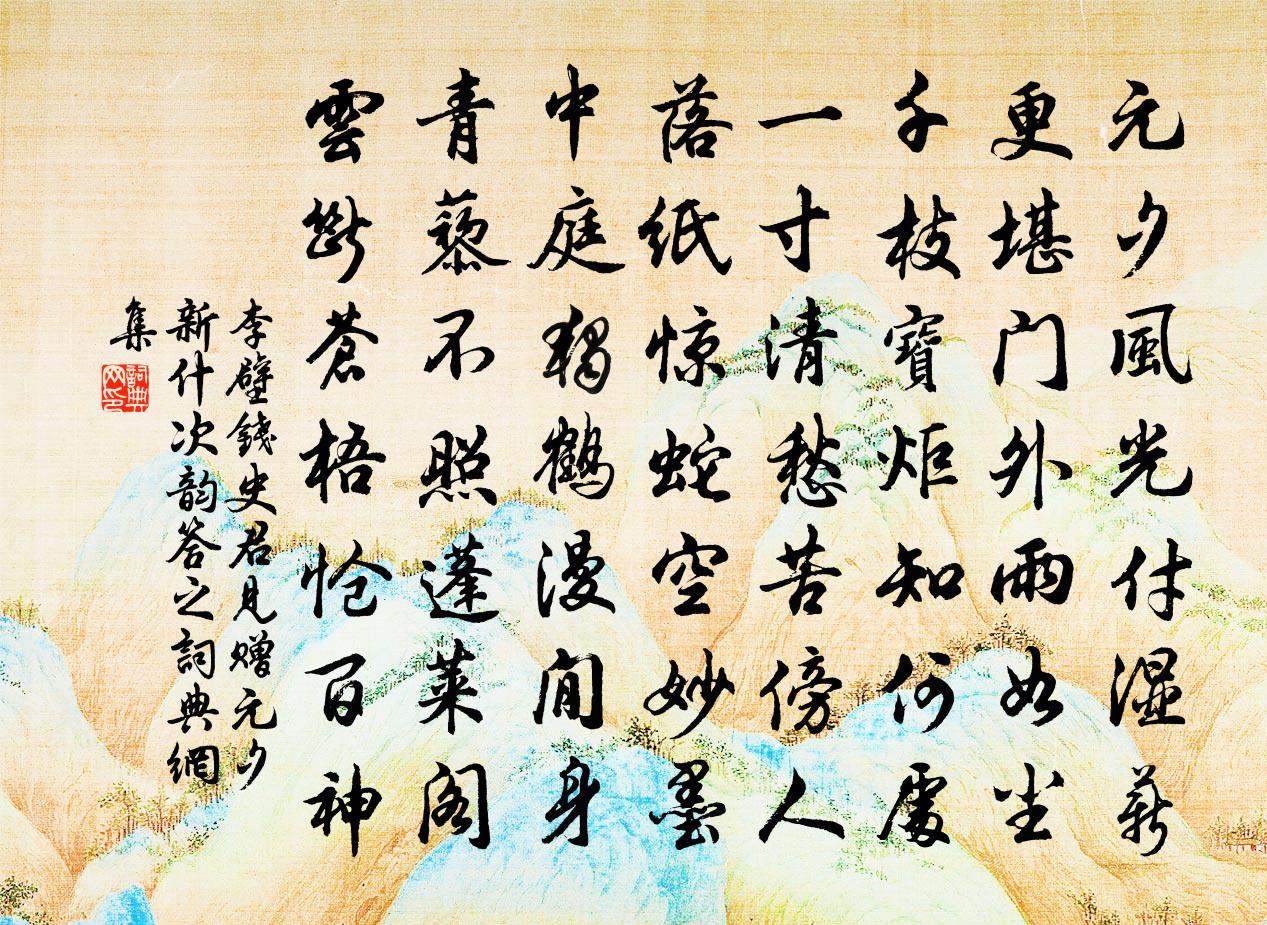 元夕風光付湿薪
更堪门外雨如尘
千枝寶炬知何處
一寸清愁苦傍人
落紙惊蛇空妙墨
中庭獨鹤漫閒身
青藜不照蓬莱阁
雲斷苍梧怆百神
李壁錢史君見赠元夕
新什次韵答之詞典網
集
詞典
网印